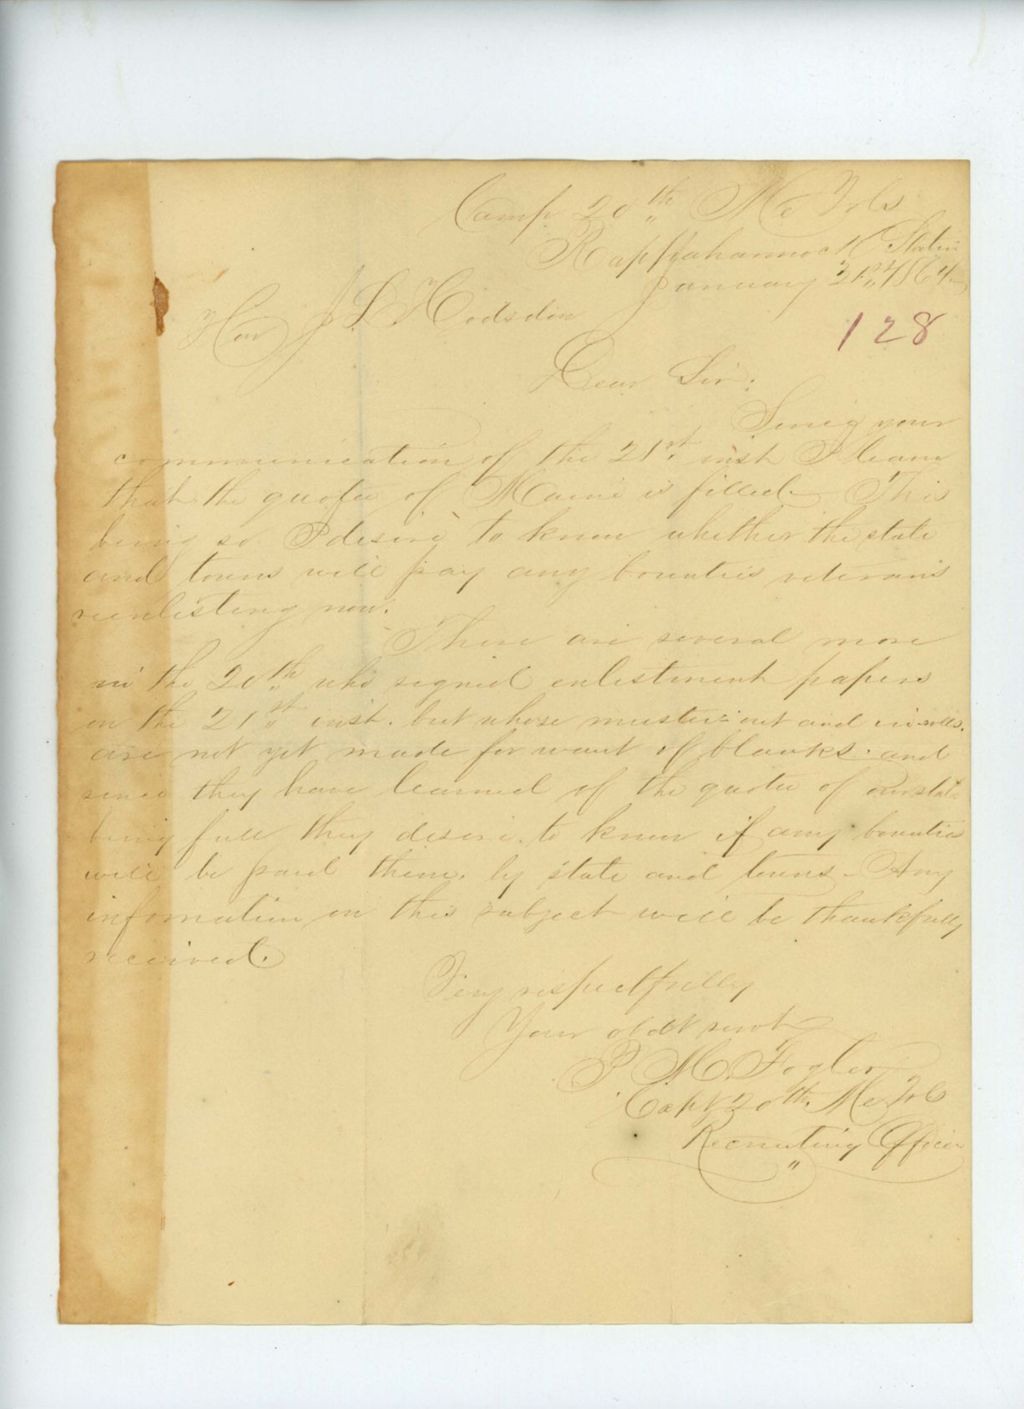 Camp 20th Me Vols
Rappahannock Station
January 21st, 1864
Hon J L Hodsdon
128
Dear Sir:
Seeing your
communication of the 21st inst I learn
that the quota of Maine is filled. This
being so I desire to know whether the state
and towns will pay any bounties veterans
reenlisting now.
There are several more
in the 20th who signed enlistment papers
on the 21st inst. but whose muster out and in rolls.
are not yet made for want of blanks. and
since they have learned of the quota of our state
being full they desire to know if any bounties
will be paid them by state and towns - Any
information on this subject will be thankfully
received.
Very respectfully
Your obdt servt
P M. Fogler
Capt 20th. Me Vols
Recruiting Officer